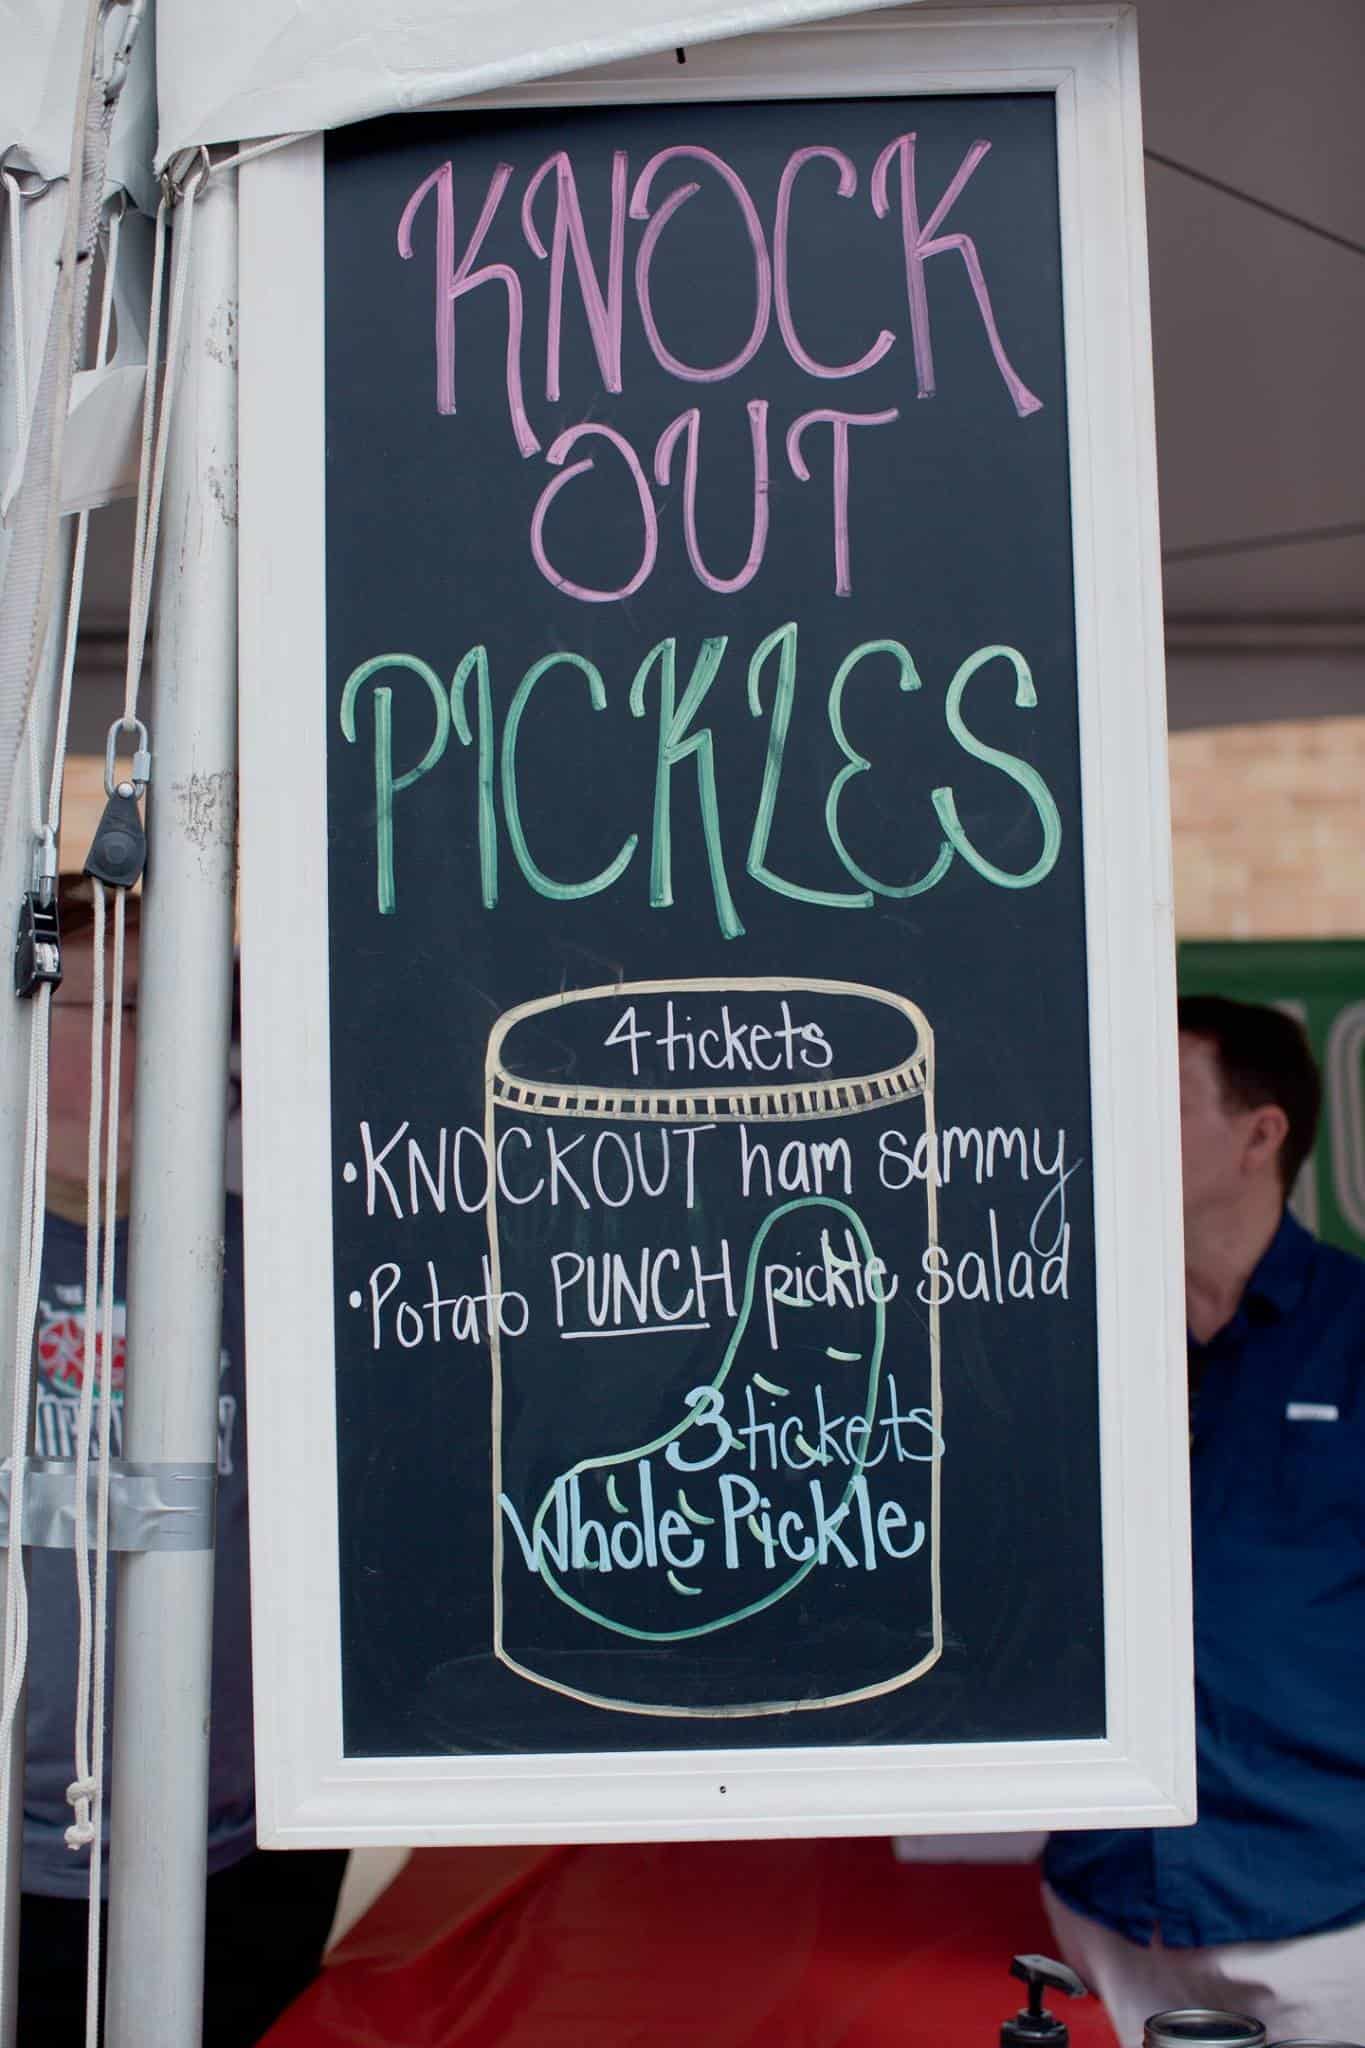 KNOCK
OUT
PICKLES
4 tickets
• KNOCKOUT ham sammy
• Potato PUNCH pickle salad
3 tickets
Whole Pickle